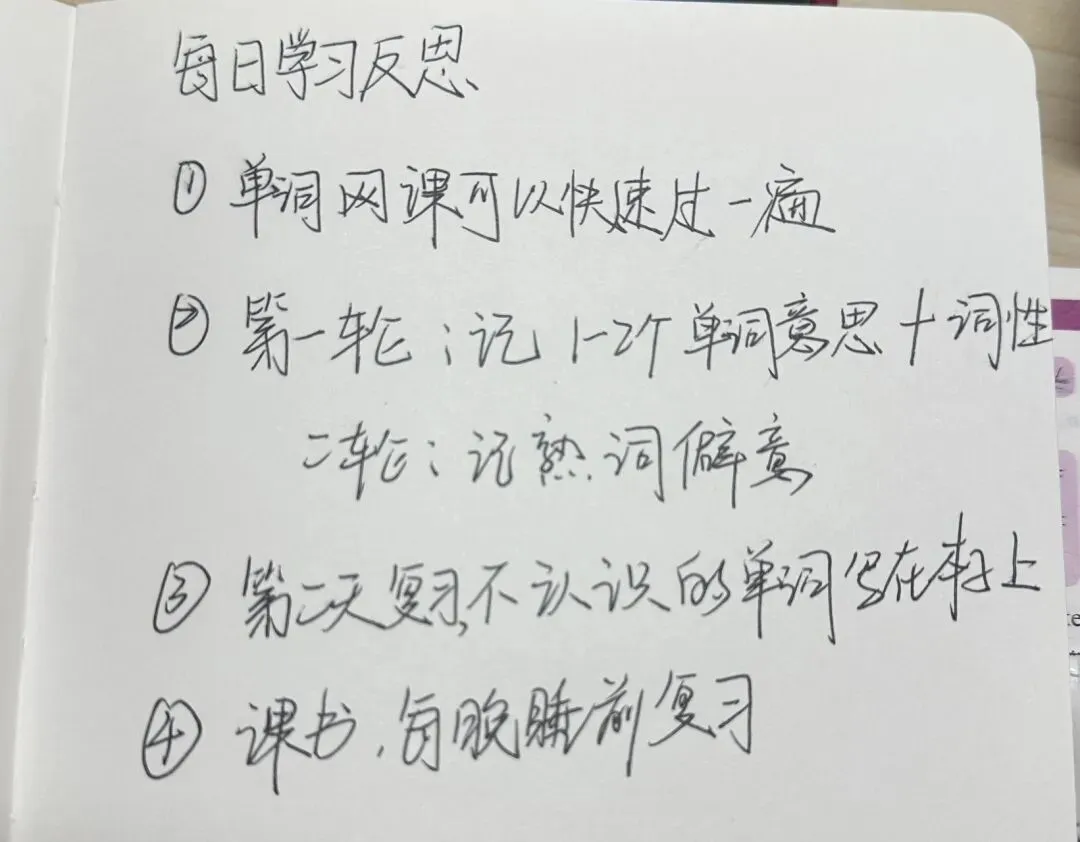 每日学习反思
① 单词网课可以快速过一遍
② 第一轮：记1-2个单词意思+词性
二轮：记熟词僻意
③ 第二天复习,不认识的单词写在本子上
④ 课书,每晚睡前复习